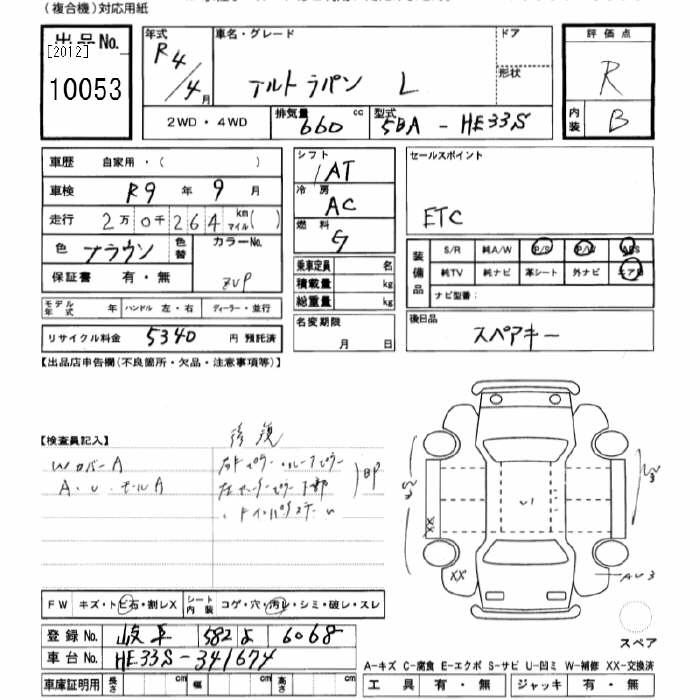 (複合機)対応用紙
出品No.
[2012]
10053
年式 R4/4月
車名・グレード アルトラパン L
ドア
形状
2WD・4WD
排気量 660 cc
型式 5BA-HE33S
評価点 R
内装 B
車歴 自家用・( )
車検 R9年 9月
走行 2万0千264 km マイル( )
色 ブラウン 色替 カラーNo. ZVP
保証書 有・無
モデル年式 年 ハンドル 左・右 ディーラー・並行
リサイクル料金 5340 円 預託済
シフト AT
冷房 AC
燃料 G
乗車定員 名
積載量 kg
総重量 kg
名変期限 月 日
セールスポイント
ETC
装備品 S/R 純A/W P/S P/W ABS
純TV 純ナビ 革シート 外ナビ エアB
ナビ型番:
後日品 スペアキー
【出品店申告欄(不良箇所・欠品・注意事項等)】
【検査員記入】
修復
WカバーA
A・U・モールA
BP
XX
XX
AU3
スペア
FW キズ・トビ石・割レX シート内装 コゲ・穴・汚レ・シミ・破レ・スレ
登録No. 岐阜 582 よ 6068
車台No. HE33S-341674
車庫証明用 長さ 幅 高さ
A-キズ C-腐食 E-エクボ S-サビ U-凹ミ W-補修 XX-交換済
工具 有・無 ジャッキ 有・無